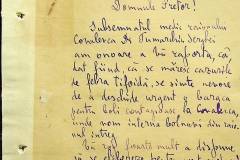 Domnule Pretor!
Subsemnatul medic raionului
Covalenca Dr. Tumarchis Serafei
am onoare a vă raporta, că
dat fiind, că se măresc cazurile
de febra tifoidă, se simte nevoe
de a deschide urgent o baracă
pentru boli contagioase la Covalenca,
unde vom interna bolnavii din raio-
nul întreg
Vă rog foarte mult a dispune
să se elibereze pentru